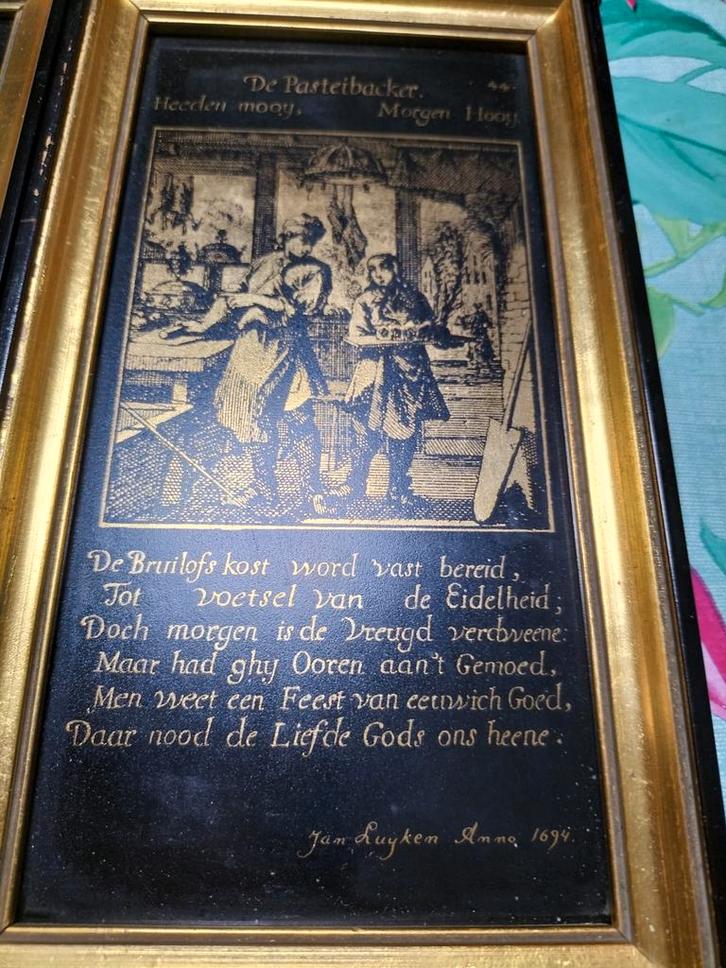 De Pasteibacker. 44.
Heeden mooy, Morgen Hooy.
De Bruilofs kost word vast bereid,
Tot voetsel van de Eidelheid;
Doch morgen is de Vreugd verdweene:
Maar had ghy Ooren aan't Gemoed,
Men weet een Feest van eeuwich Goed,
Daar nood de Liefde Gods ons heene.
Jan Luyken Anno 1694.